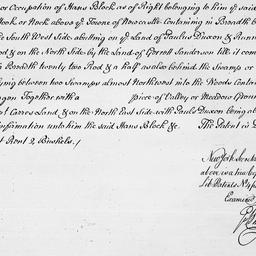 or Occupation of Hans Block as of Right belonging to him ye said
Hook or Neck above ye Towne of Newcastle Containing in Breadth be
the South West Side abutting on ye Land of Paulus Duxon &
& on the North Side by the Land of Gerrett Sanderson till it com
a Breadth twenty two Rod & a half as also behind the Swamp or
lying between two Swamps almost Northwest into the Woods Contai
Together with a piece of Valley or Meadow Groun
Carres Land & on the North East Side with Pauls Duxon being abo
Confirmation unto him the said Hans Block &c. The Patent is D
t Rent 2, Bushels./
New York
above is a true
Lib Patents No 4
Examined